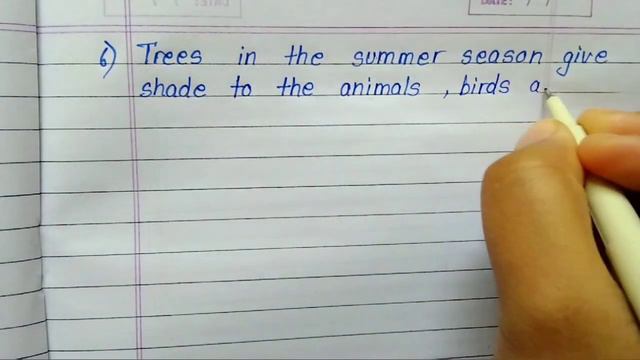 DATE: / /
6) Trees in the summer season give
shade to the animals , birds a